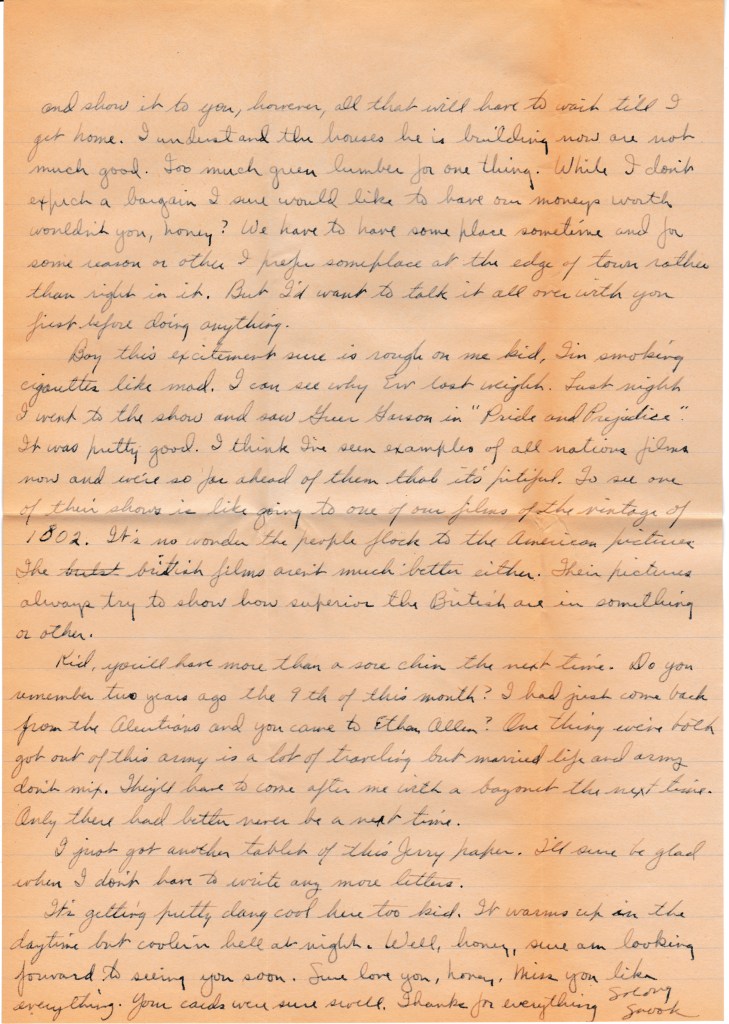 and show it to you, however, all that will have to wait till I
get home. I understand the houses he is building now are not
much good. Too much green lumber for one thing. While I don't
expect a bargain I sure would like to have our moneys worth
wouldn't you, honey? We have to have some place sometime and for
some reason or other I prefer someplace at the edge of town rather
than right in it. But I'd want to talk it all over with you
first before doing anything.
Boy this excitement sure is rough on me kid, I'm smoking
cigarettes like mad. I can see why Erv lost weight. Last night
I went to the show and saw Greer Garson in "Pride and Prejudice".
It was pretty good. I think I've seen examples of all nations films
now and we're so far ahead of them that it's pitiful. To see one
of their shows is like going to one of our films of the vintage of
1802. It's no wonder the people flock to the American pictures
The british films aren't much better either. Their pictures
always try to show how superior the British are in something
or other.
Kid, you'll have more than a sore chin the next time. Do you
remember two years ago the 9th of this month? I had just come back
from the Aleutians and you came to Ethan Allen? One thing we've both
got out of this army is a lot of traveling but married life and army
don't mix. They'll have to come after me with a bayonet the next time.
Only there had better never be a next time.
I just got another tablet of this Jerry paper. I'll sure be glad
when I don't have to write any more letters.
It's getting pretty dang cool here too kid. It warms up in the
daytime but cooler'n hell at night. Well, honey, sure am looking
forward to seeing you soon. Sure love you, honey, Miss you like
everything. Your cards were sure swell. Thanks for everything
So long
Snook